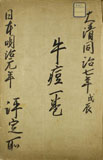 大清同治七年戊辰
牛痘一毫
日本明治元年
評定所